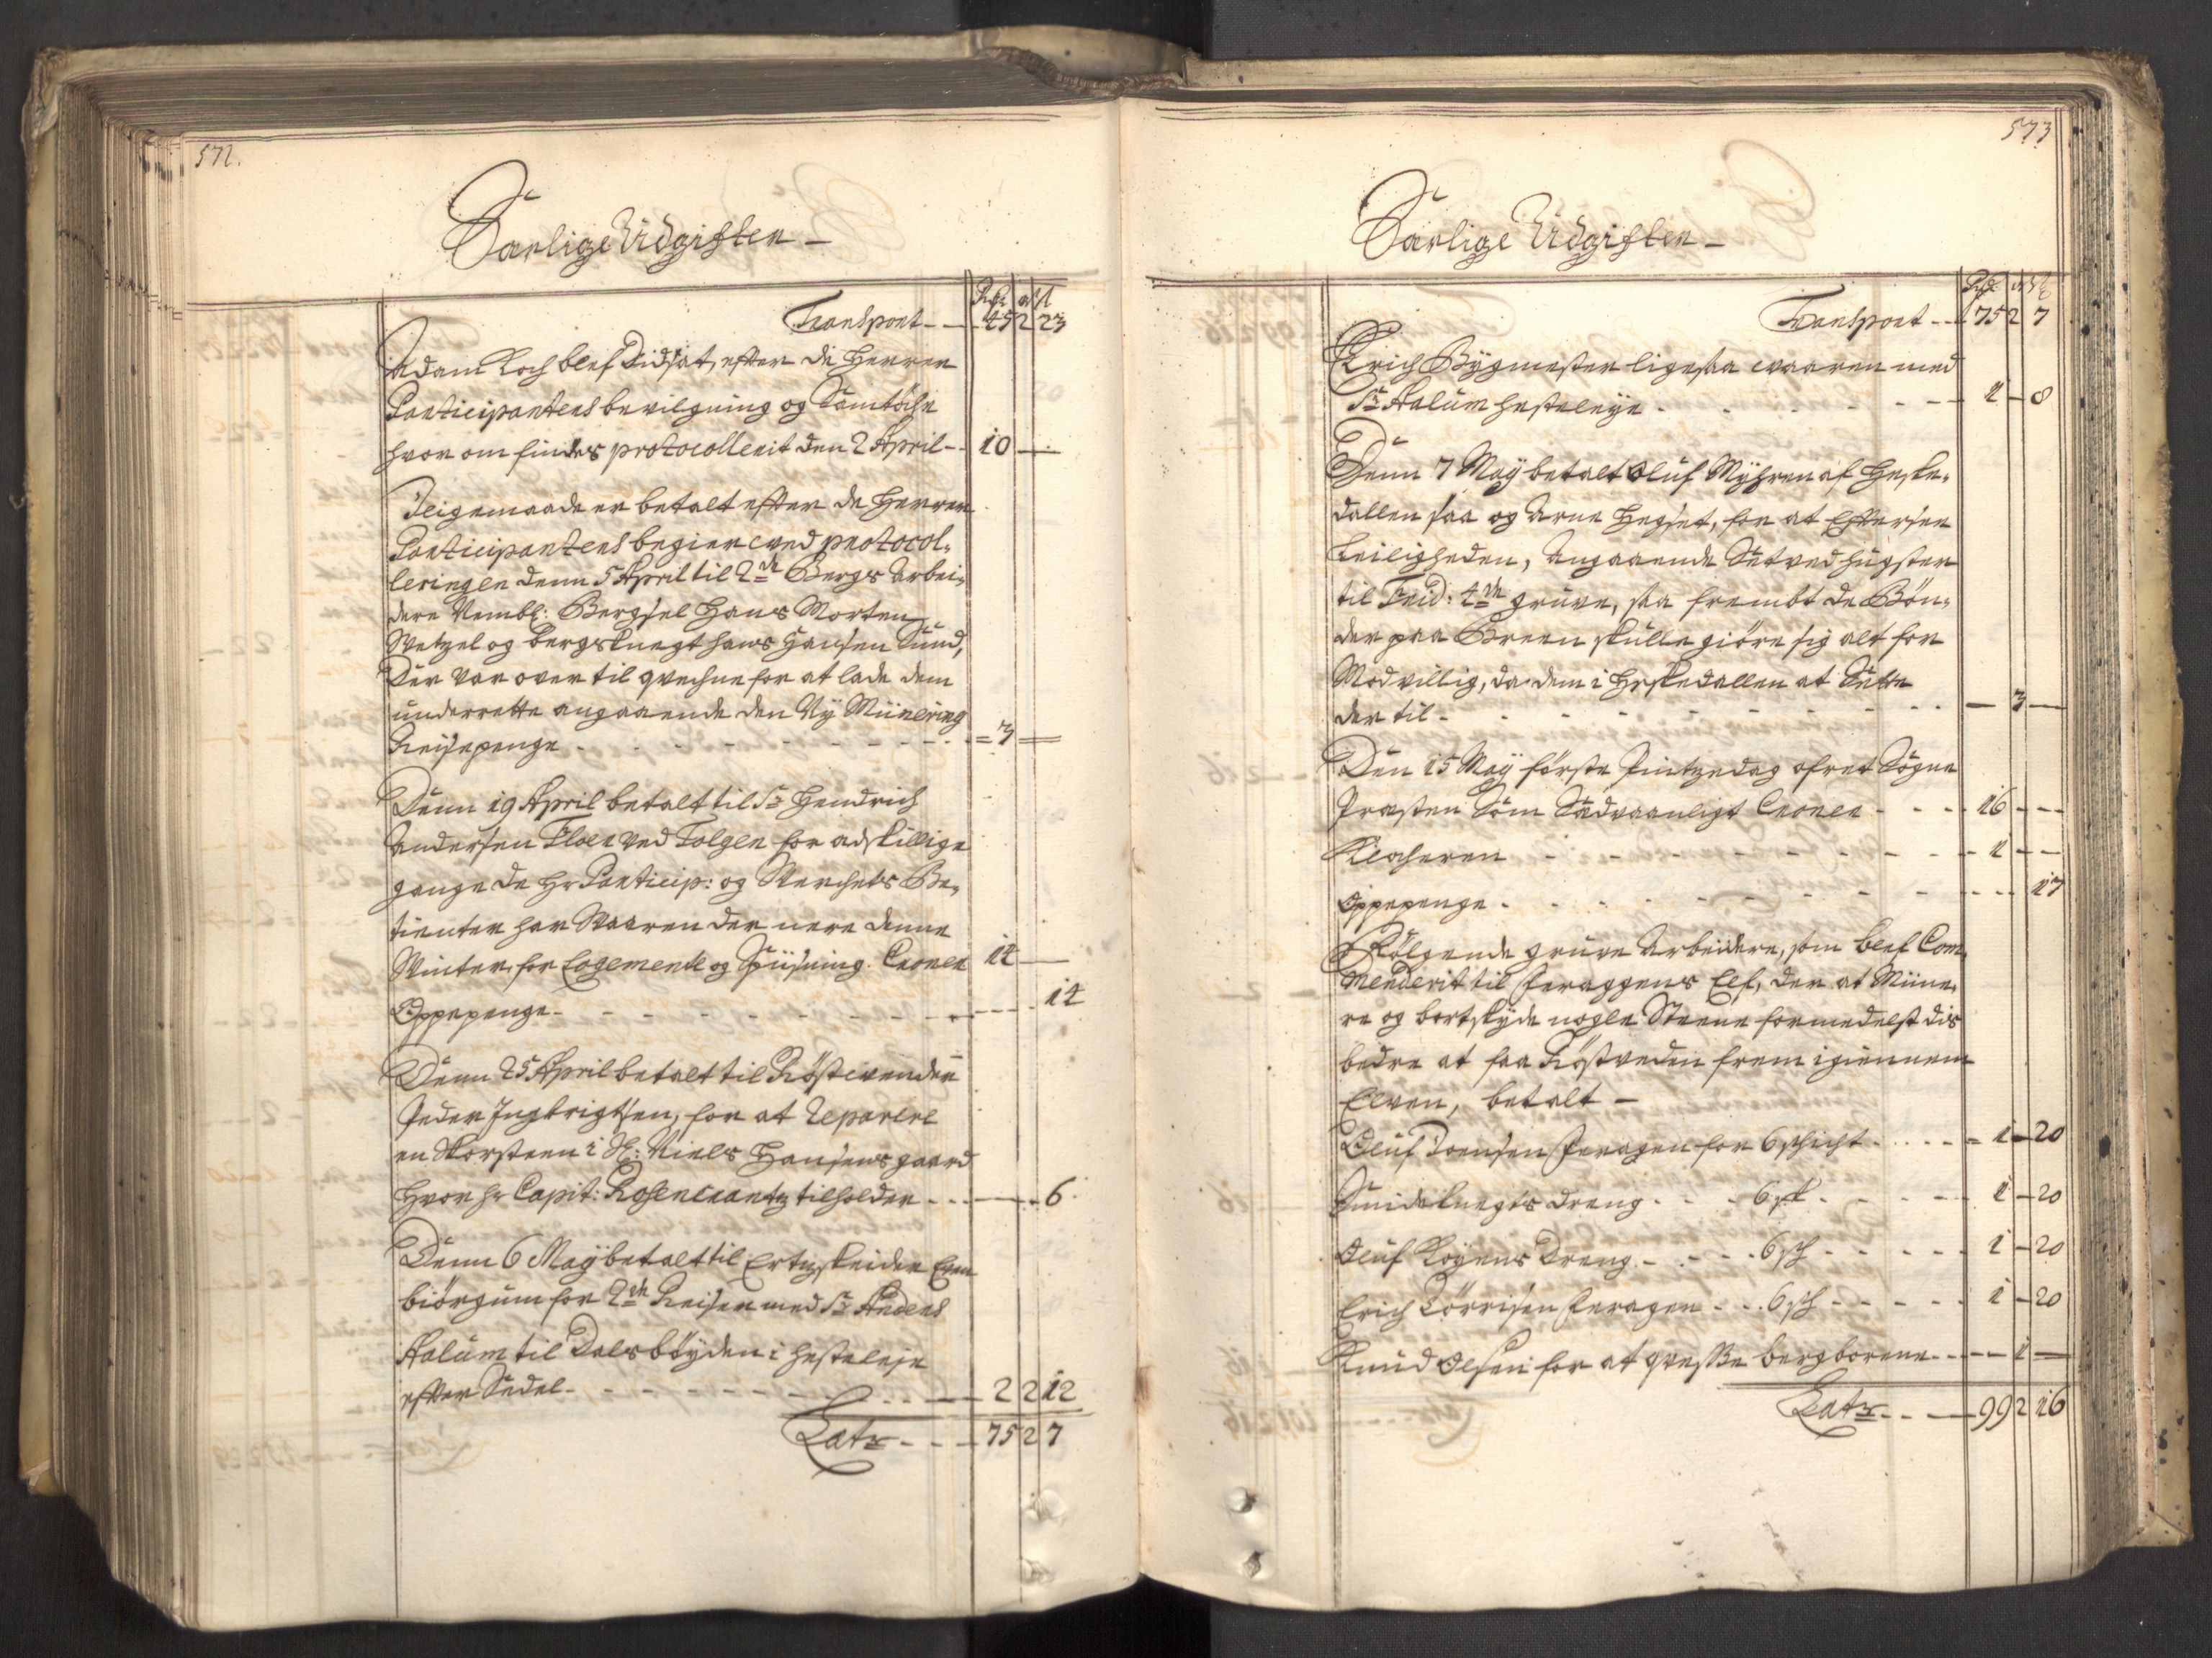 572.
Särlige Udgifter
Rdr ort ſ
Transport - - 45 2 23
Adam Koch blef Tidsat, efter di Herrer
Participanters bevilgning og Samtöche
hvor om findes protocollerit den 2 April - 10 —
Ligemaade er betalt efter de Herrer
Participanters begier ved protocol-
leringen denn 5 April til 2de Bergs Arbei-
dere Nembl: Bergsel Hans Morten
Wetzel og bergsknegt Hans Hansen Lund,
Der var over til qvechne for at lade dem
underrette angaaende den Ny Minering
Reisepenge - - - - - 3 —
Denn 19 April betalt til Sr Hendrich
Andersen Floer ved Tolgen for adskillige
gange de Hr Particip: og Werchets Be-
tienter har Waaren der nere denne
Winter, for Logemente og Spiisning. Croner 14 —
Oppepenge - - - - - 14
Denn 25 April betalt til Röstevender
Peder Ingbrigtsen, for at Reparere
en Skorsteen i Sl: Niels Hansens gaard
hvor Hr Capit: Rosencrantz tilholder - - - — - 6
Denn 6 May betalt til Ertzskeider Even
biörgum for 2de Reiser med Sr Anders
Aalum til Dalsböyden i hesteleje
efter Sedel - - - - - 2 2 12
Latr - - - 75 2 7
573
Särlige Udgifter
Rdr ort ſ
Transport - - 75 2 7
Erich Bygmester ligesaa waaren med
Sr Aalum hesteleye - - - - - 1 - 8
Denn 7 May betalt Oluf Myhren af Heske-
dallen saa og Arne Hegset, for at Eftersee
Leiligheden, Angaaende Sætved hugster
til Frid: 4de gruve, saa frembt de Bön-
der paa Breen skulle giöre sig alt for
Modvillig, da dem i Heskedallen at Sætte
der til - - - - - — 3 —
Den 15 May förste Pintzedag ofret Sogne
Præsten Som Sædvaanligt Croner - - - 16 - -
Klocheren - - - - - 1 - -
Oppepenge - - - - - 17
Fölgende gruve Arbeidere, som blef Com-
menderit til Feraggens Elf, der at Mine-
re og bortskyde nogle Steene formedelst dis
bedre at faa Röstveden frem igiennem
Elven, betalt -
Oluf Joensen Feragen for 6 schicht - - - - 1 - 20
Smideknegts Dreng - - - 6 sch - - - - 1 - 20
Oluf Koyens Dreng - - - 6 sch - - - - 1 - 20
Erich Törrisen Feragen - - - 6 sch - - - - 1 - 20
Knud Olsen for at hvesse bergborene - - - - 1 —
Latr - - - 99 2 16